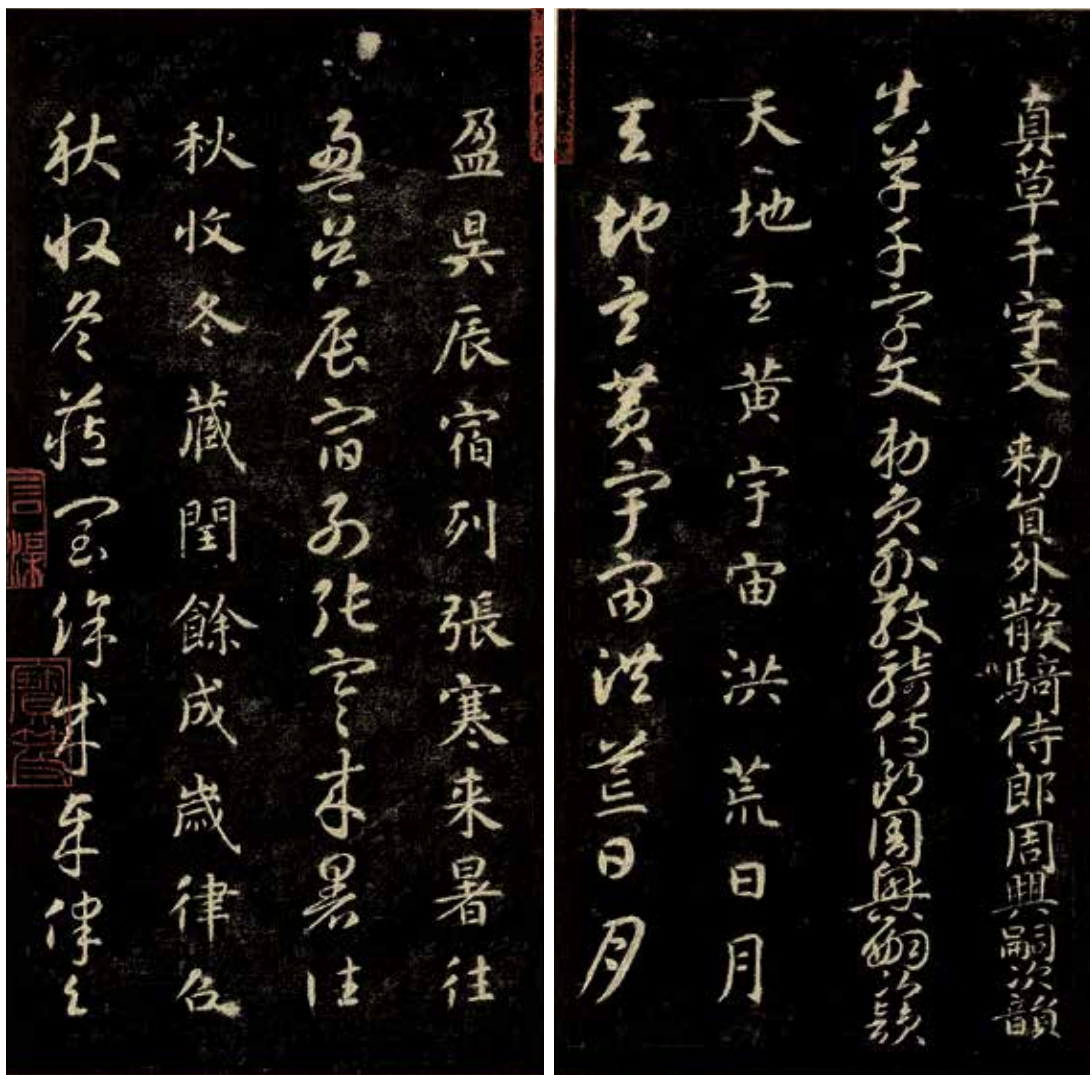 真草千字文 勑員外散騎侍郎周興嗣次韻
真草千字文 勑員外散騎侍郎周興嗣次韻
天地玄黄宇宙洪荒日月
天地玄黄宇宙洪荒日月
盈昃辰宿列張寒来暑往
盈昃辰宿列張寒来暑往
秋收冬藏閏餘成歲律召
秋收冬藏閏餘成歲律召